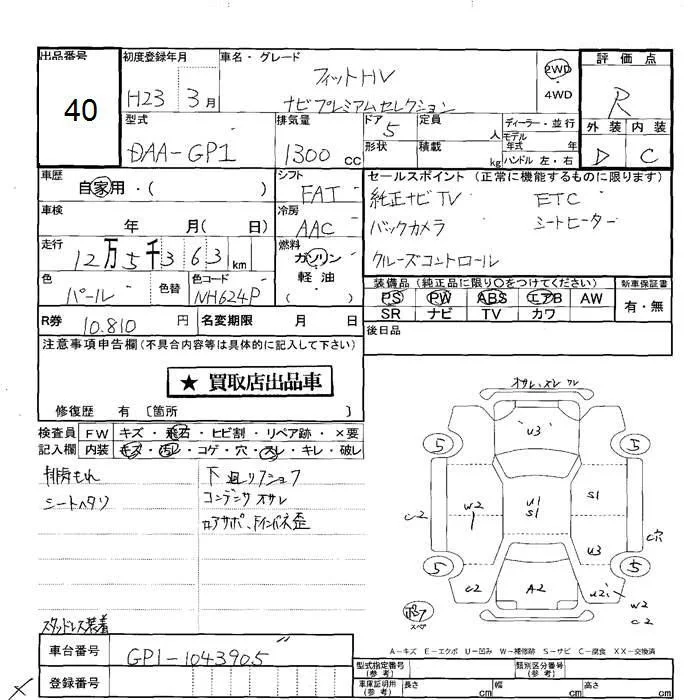 出品番号
40
初度登録年月
H23 3月
車名・グレード
フィットHV
ナビプレミアムセレクション
2WD
4WD
評価点
R
外装 内装
D C
型式
DAA-GP1
排気量
1300 cc
ドア 5
形状
定員 人
積載 kg
ディーラー・並行
モデル
年式 年
ハンドル 左・右
車歴
自家用・( )
シフト
FAT
セールスポイント (正常に機能するものに限ります)
純正ナビTV ETC
バックカメラ シートヒーター
クルーズコントロール
車検
年 月( 日)
冷房
AAC
走行
12万5千363km
燃料
ガソリン
軽油
( )
色
パール
色替
色コード
NH624P
装備品(純正品に限り○をつけてください)
PS PW ABS エアB AW
SR ナビ TV カワ
新車保証書
有・無
R券 10.810円
名変期限 月 日
後日品
注意事項申告欄(不具合内容等は具体的に記入して下さい)
★ 買取店出品車
修復歴 有 〔箇所 〕
検査員
記入欄
FW キズ・飛石・ヒビ割・リペア跡・×要
内装 キズ・汚レ・コゲ・穴・スレ・キレ・破レ
排気もれ
シートヘタリ
下廻リアショフ
コンデンサオサレ
スタッドレス装着
オサレ、ズレ ワレ
U3
5 5
C2
W2
U1
S1
S1
C穴
U3
5 5
C2
A2
U2
W2
C2
スペア
A-キズ E-エクボ U-凹み W-補修跡 S-サビ C-腐食 XX-交換済
車台番号
GP1-1043905
登録番号
型式指定番号
(参考)
類別区分番号
(参考)
車庫証明用
(参考)
長さ cm 幅 cm 高さ cm